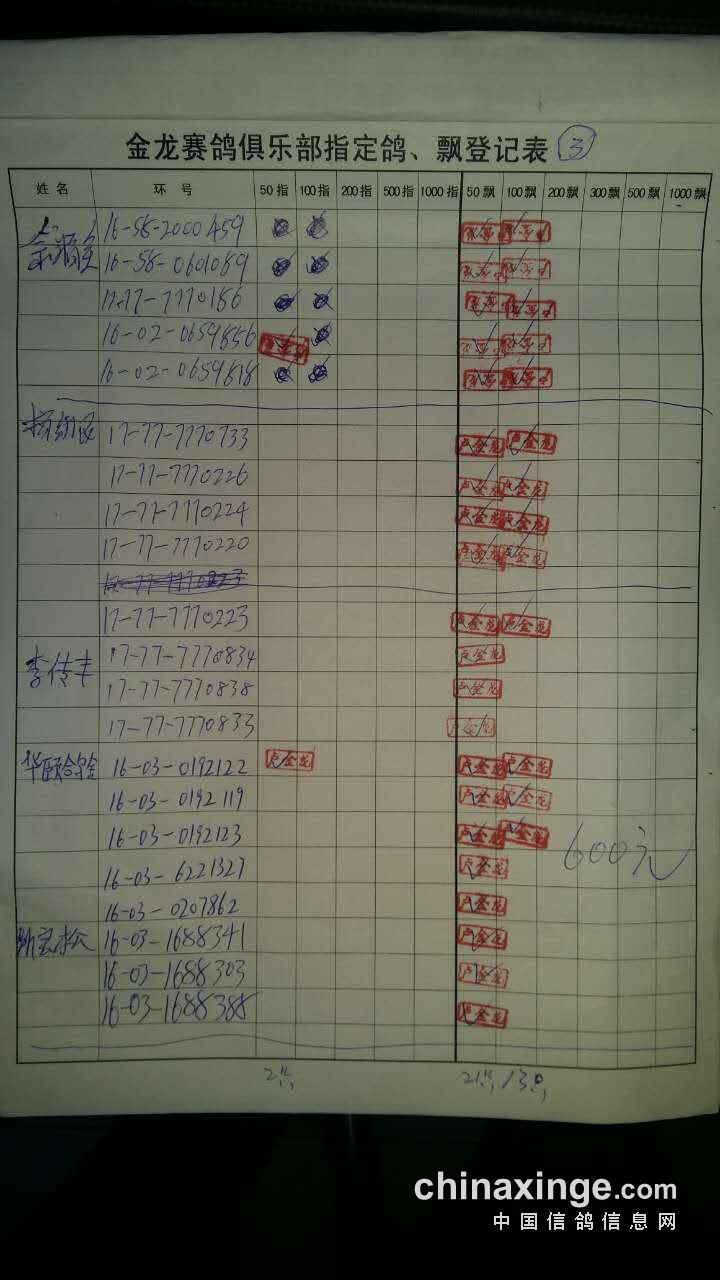 金龙赛鸽俱乐部指定鸽、飘登记表 ③
姓名 环号 50指 100指 200指 500指 1000指 50飘 100飘 200飘 300飘 500飘 1000飘
16-58-2000459
16-58-0601089
17-77-7770186
16-02-0659856
16-02-0659818
17-77-7770733 卢金龙 卢金龙
17-77-7770226 卢金龙 卢金龙
17-77-7770224 卢金龙 卢金龙
17-77-7770220 卢金龙 卢金龙
17-77-7770223
17-77-7770223 卢金龙 卢金龙
李传丰 17-77-7770834 卢金龙
17-77-7770838 卢金龙
17-77-7770833 卢金龙
16-03-0192122 卢金龙 卢金龙 卢金龙
16-03-0192119 卢金龙 卢金龙
16-03-0192123 卢金龙 卢金龙 600元
16-03-6221327 卢金龙
16-03-0207862 卢金龙
16-03-1688341 卢金龙
16-03-1688303 卢金龙
16-03-1688388 卢金龙
chinaxinge.com
中国信鸽信息网